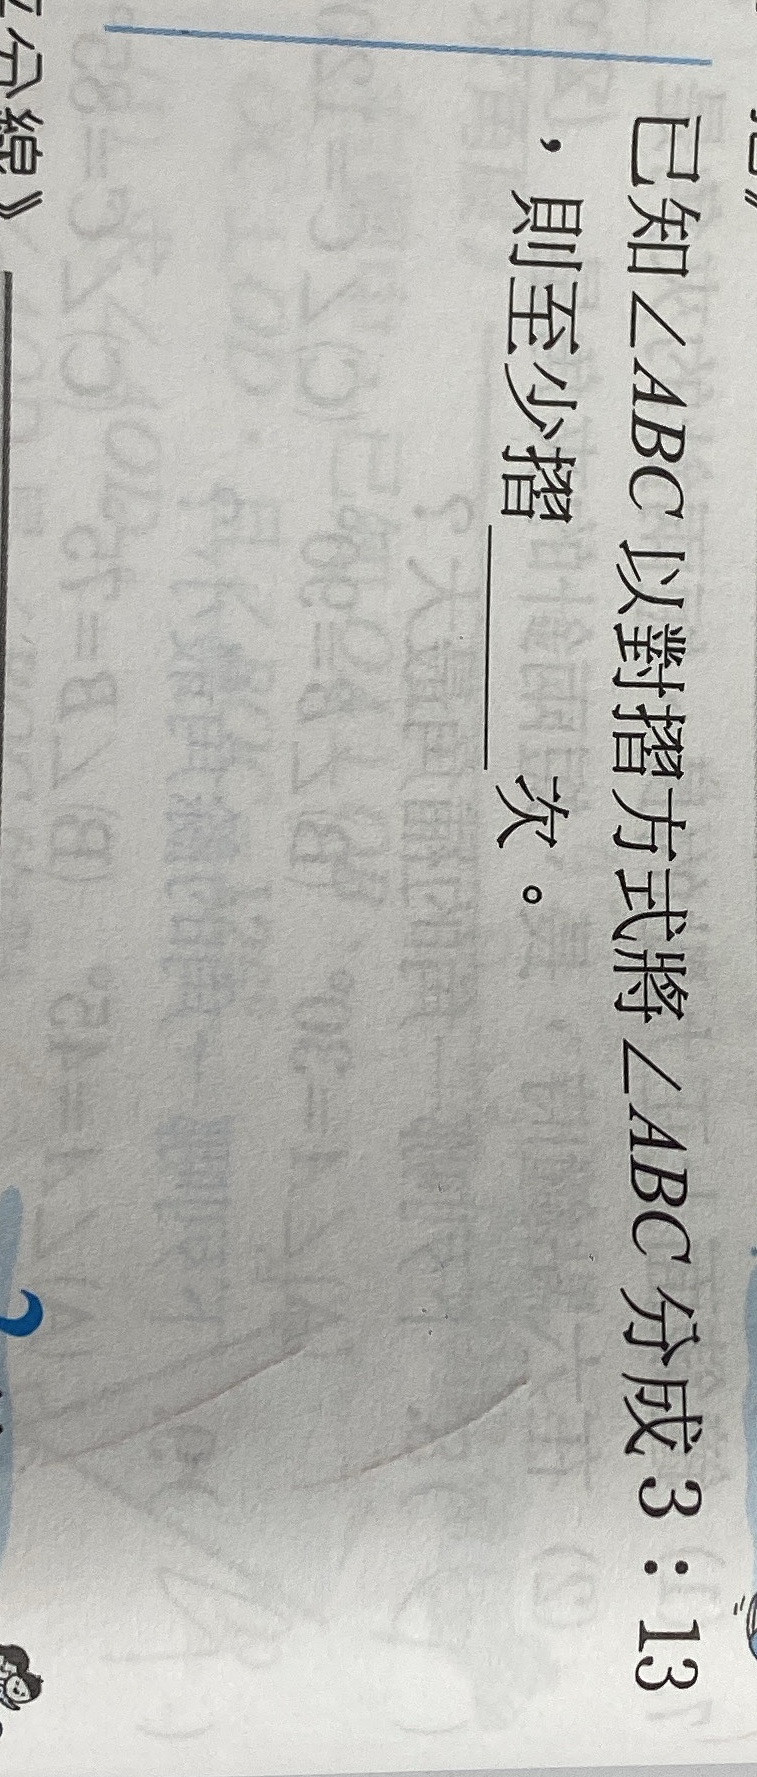 已知∠ABC以對摺方式將∠ABC分成3：13
，則至少摺______次。
分線》